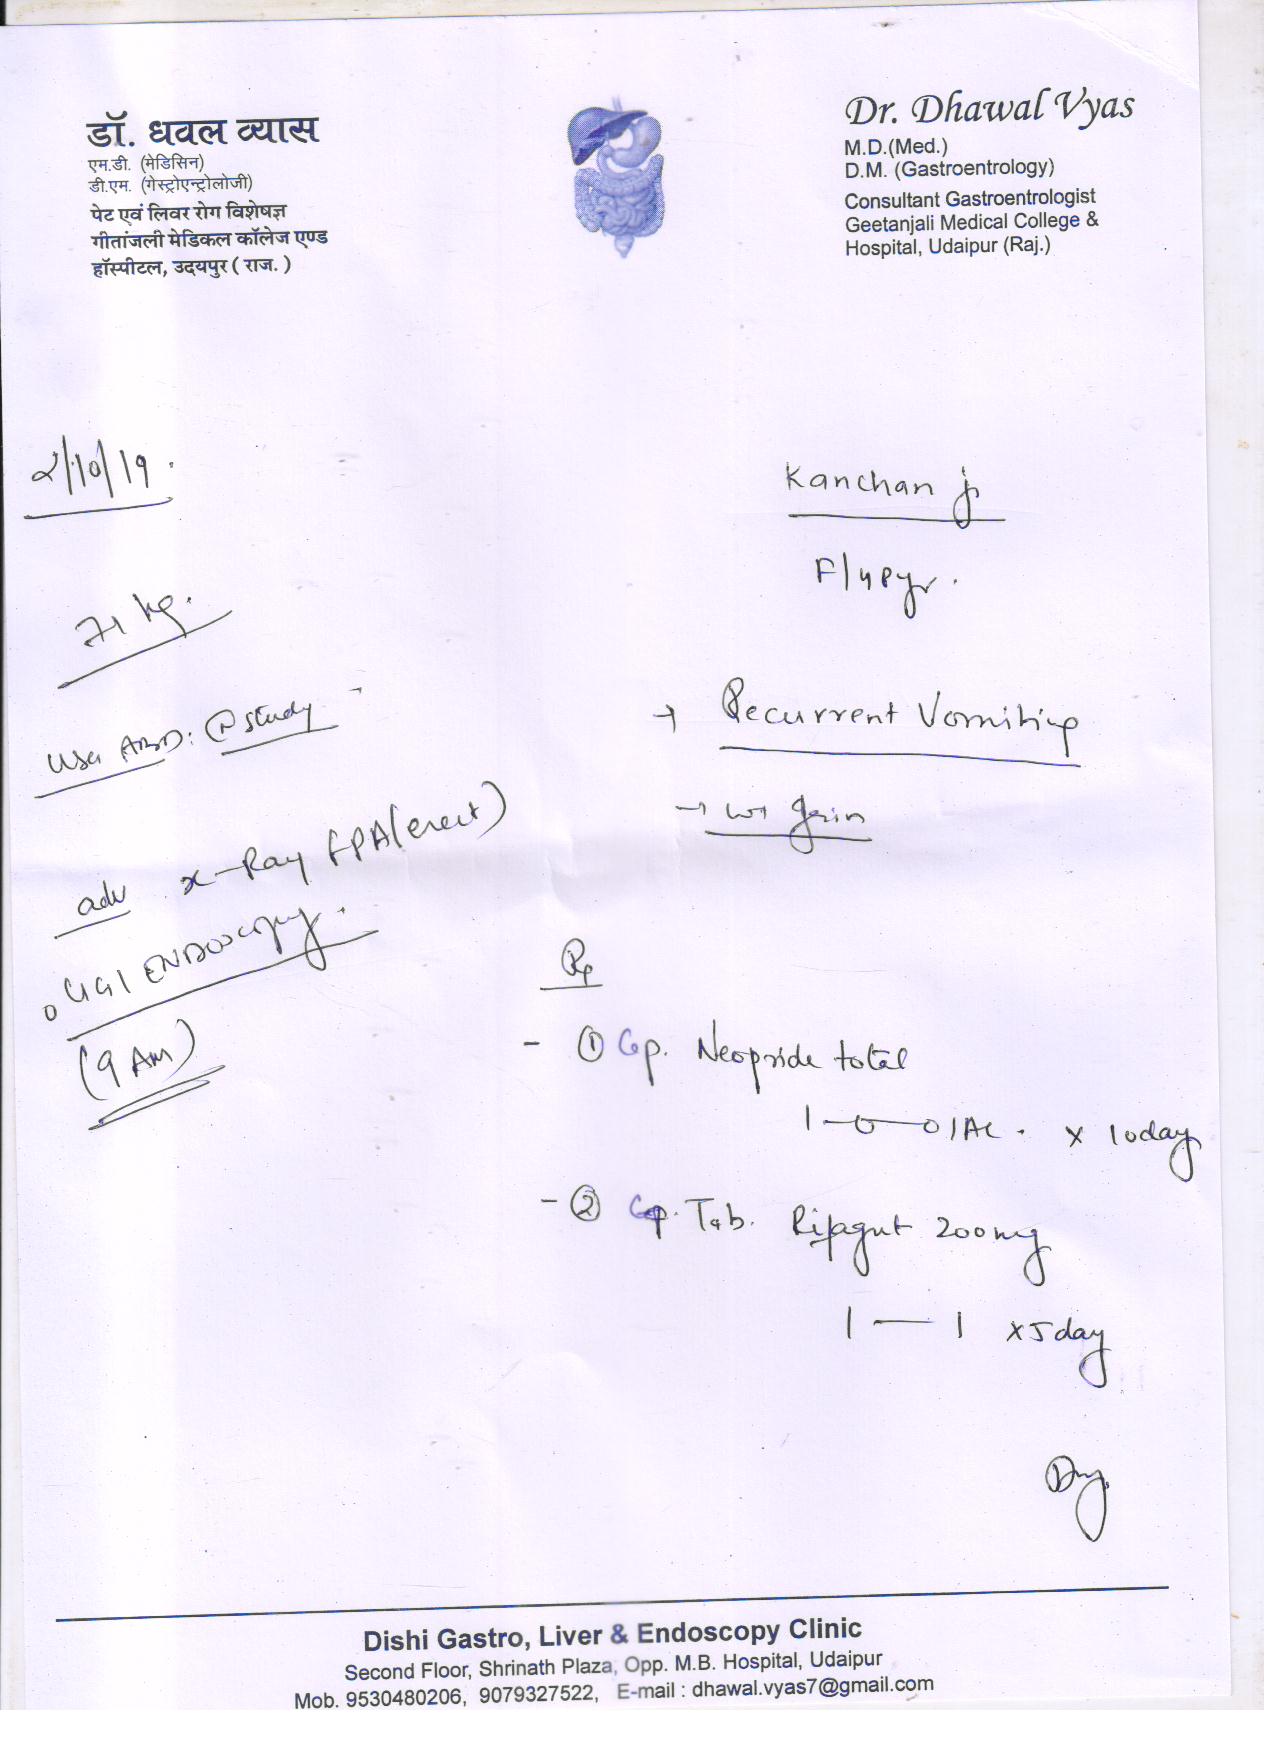 डॉ. धवल व्यास
एम.डी. (मेडिसिन)
डी.एम. (गेस्ट्रोएन्ट्रोलोजी)
पेट एवं लिवर रोग विशेषज्ञ
गीतांजली मेडिकल कॉलेज एण्ड
हॉस्पीटल, उदयपुर ( राज. )
Dr. Dhawal Vyas
M.D.(Med.)
D.M. (Gastroentrology)
Consultant Gastroentrologist
Geetanjali Medical College &
Hospital, Udaipur (Raj.)
2/10/19.
Kanchan ji
71 kg.
→ Recurrent Vomiting
USG ABD: study
→ wt gain
adv x-Ray (erect)
UGI ENDOSCOPY.
(9 AM)
Rx
- ① Cap. Neopride total
1—0—0 x 10day
- ② Tab. Rifagut 200mg
1 — 1 x 5day
Dishi Gastro, Liver & Endoscopy Clinic
Second Floor, Shrinath Plaza, Opp. M.B. Hospital, Udaipur
Mob. 9530480206, 9079327522, E-mail : dhawal.vyas7@gmail.com